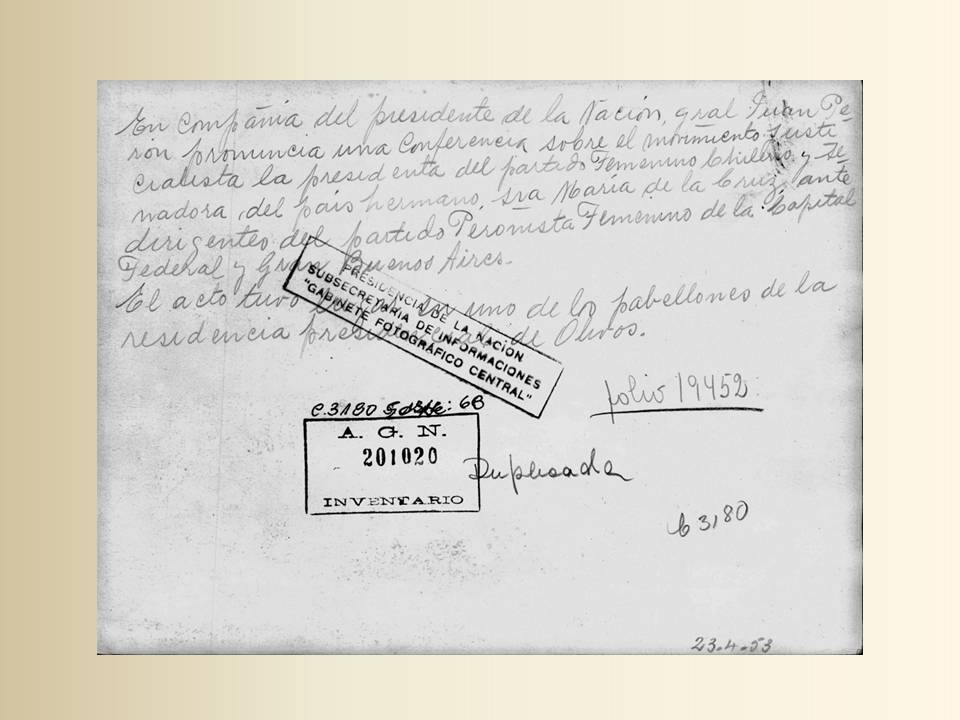 En compañia del presidente de la Nación, gral Juan Pe-
ron pronuncia una Conferencia sobre el movimiento Justi-
cialista la presidenta del partido Femenino Chileno y Se-
nadora, del país hermano, sra María de la Cruz, ante
dirigentes del partido Peronista Femenino de la Capital
Federal y Gran Buenos Aires.-
El acto tuvo en uno de los pabellones de la
residencia presidencial de Olivos.
PRESIDENCIA DE LA NACION
SUBSECRETARIA DE INFORMACIONES
"GABINETE FOTOGRÁFICO CENTRAL"
folio 19452
C.3180 : 68
A. G. N.
201020
INVENTARIO
Duplicada
C 3180
23.4.53